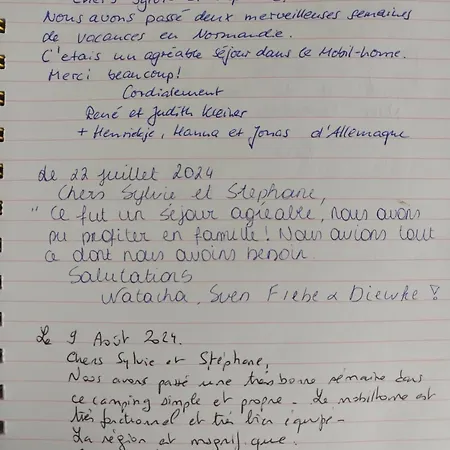 Nous avons passé deux merveilleuses semaines
de vacances en Normandie.
C'etais un agréable séjour dans ce Mobil-home.
Merci beaucoup!
Cordialement
René et Judith
+ Hanna et Jonas d'Allemagne
de 22 juillet 2024
Chers Sylvie et Stéphane,
" Ce fut un séjour agréable, nous avons
pu profiter en famille! Nous avions tout
ce dont nous avoins besoin.
Salutations
Watacha, Sven Fiebe &
Le 9 Août 2024.
Chers Sylvie et Stéphane,
Nous avons passé une très bonne semaine dans
ce camping simple et propre - Le mobilhome est
très fonctionnel et très bien équipé -
La région et magnifique.